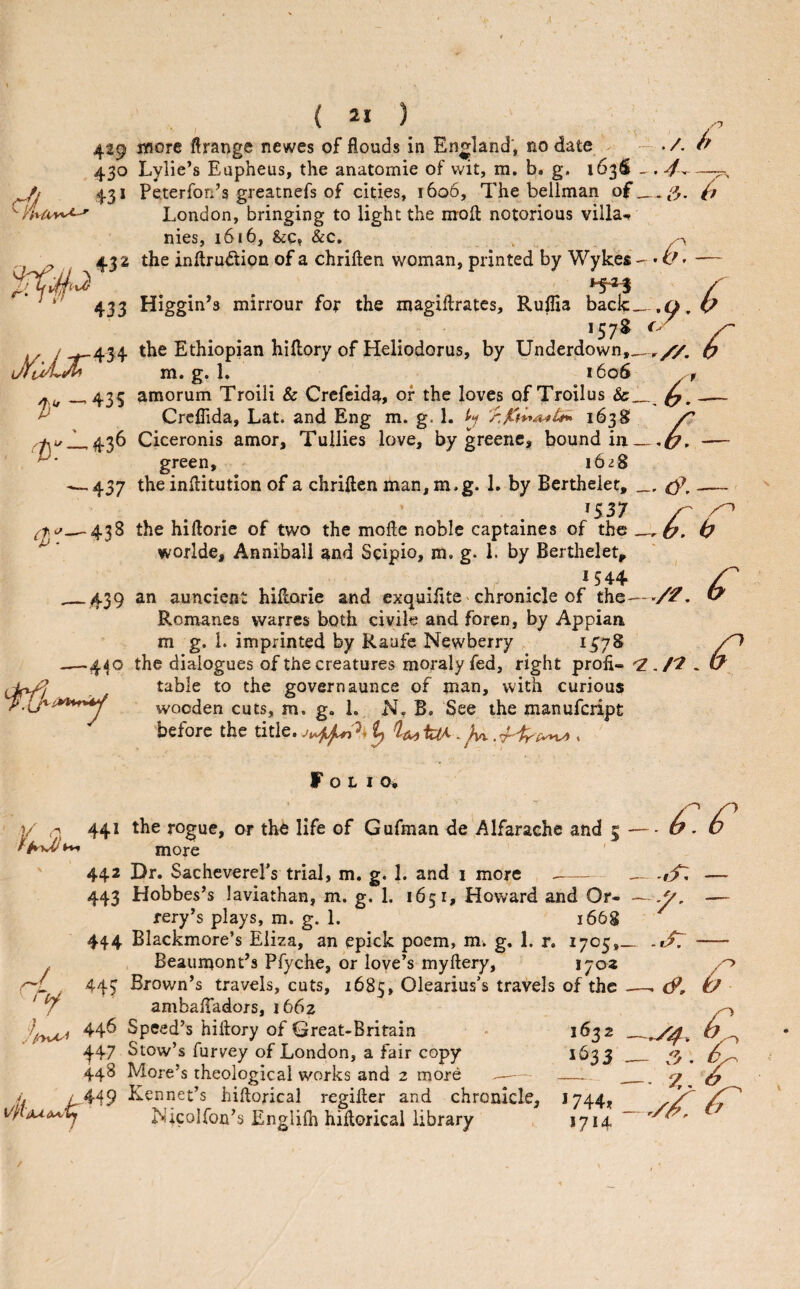 ( 21 )
429 more ſtrange newes of flouds in England, no date . 1. 6
430 Lylie's Eupheus, the anatomie of wit, m. b. g. 1636 . 4. —
431 Peterſon's greatneſs of cities, 1606, The bellman of . 3. 6
London, bringing to light the moſt notorious villa-
nies, 1616, &c, &c.
432 the inſtruction of a chriſten woman, printed by Wykes . 6. —
433 Higgin's mirrour for the magiſtrates, Ruſſia back . 9. 6
1578
434 the Ethiopian hiſtory of Heliodorus, by Underdown, . 11. 6
m. g. l. 1606
435 amorum Troili & Creſeida, or the loves of Troilus & . 6. —
Creſſida, Lat. and Eng m. g. l. by 1638
436 Ciceronis amor, Tullies love, by greene, bound in . 6. —
green, 1628
437 the inſtitution of a chriſten man, m. g. l. by Berthelet, . 8. —
1537
438 the hiſtorie of two the moſte noble captaines of the . 6. 6
worlde, Anniball and Scipio, m. g. l. by Berthelet,
1544
439 an auncient hiſtorie and exquiſite chronicle of the . 17. 6
Romanes warres both civile and foren, by Appian
m g. l. imprinted by Raufe Newberry 1578
440 the dialogues of the creatures moraly ſed, right profi- 2. 12. 6
table to the governaunce of man, with curious
wooden cuts, m. g. l. N. B. See the manuſcript
before the title.
FOLIO.
441 the rogue, or the life of Guſman de Alfarache and 5 . 6. 6
more
442 Dr. Sacheverel's trial, m. g. l. and 1 more . 5. —
443 Hobbes's laviathan, m. g. l. 1651, Howard and Or- . 7. —
rery's plays, m. g. l. 1668
444 Blackmore's Eliza, an epick poem, m. g. l. r. 1705, . 5. —
Beaumont's Pſyche, or love's myſtery, 1702
445 Brown's travels, cuts, 1685, Olearius's travels of the . 8. 6
ambaſſadors, 1662
446 Speed's hiſtory of Great-Britain 1632 . 14. 6
447 Stow's ſurvey of London, a fair copy 1633 . 3. 6
448 More's theological works and 2 more . 2. 6
449 Kennet's hiſtorical regiſter and chronicle, 1744, . 15. 6
Nicolſon's Engliſh hiſtorical library 1714